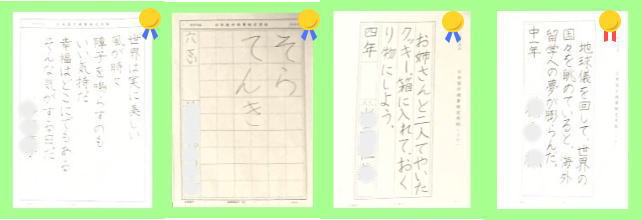 世界は実に美しい
風が時々
障子を鳴らすのも
いい気持だ
幸福はどこにでもある
そんな気がする日だ
そら
てんき
六さい
お姉さんと二人でやいた
クッキー。箱に入れて、おく
り物にしよう。
四年
地球儀を回して、世界の
国々を眺めていると、海外
留学への夢が膨らんだ。
中一年